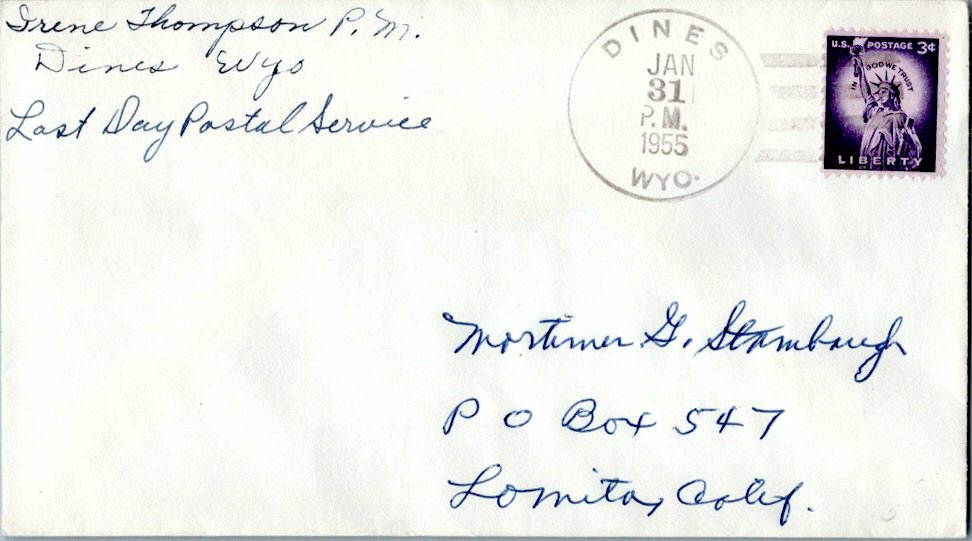 Irene Thompson P.M.
Dines Wyo
Last Day Postal Service
DINES
JAN
31
P.M.
1955
WYO.
U.S. POSTAGE 3¢
IN GOD WE TRUST
LIBERTY
Mortimer G. Stambaugh
P O Box 547
Lomita, Calif.